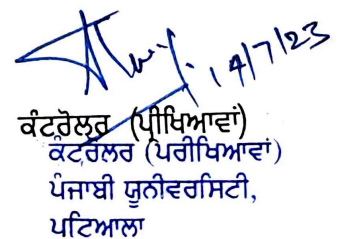 14/7/23
ਕੰਟਰੋਲਰ (ਪ੍ਰੀਖਿਆਵਾਂ)
ਕੰਟਰੋਲਰ (ਪਰੀਖਿਆਵਾਂ)
ਪੰਜਾਬੀ ਯੂਨੀਵਰਸਿਟੀ,
ਪਟਿਆਲਾ